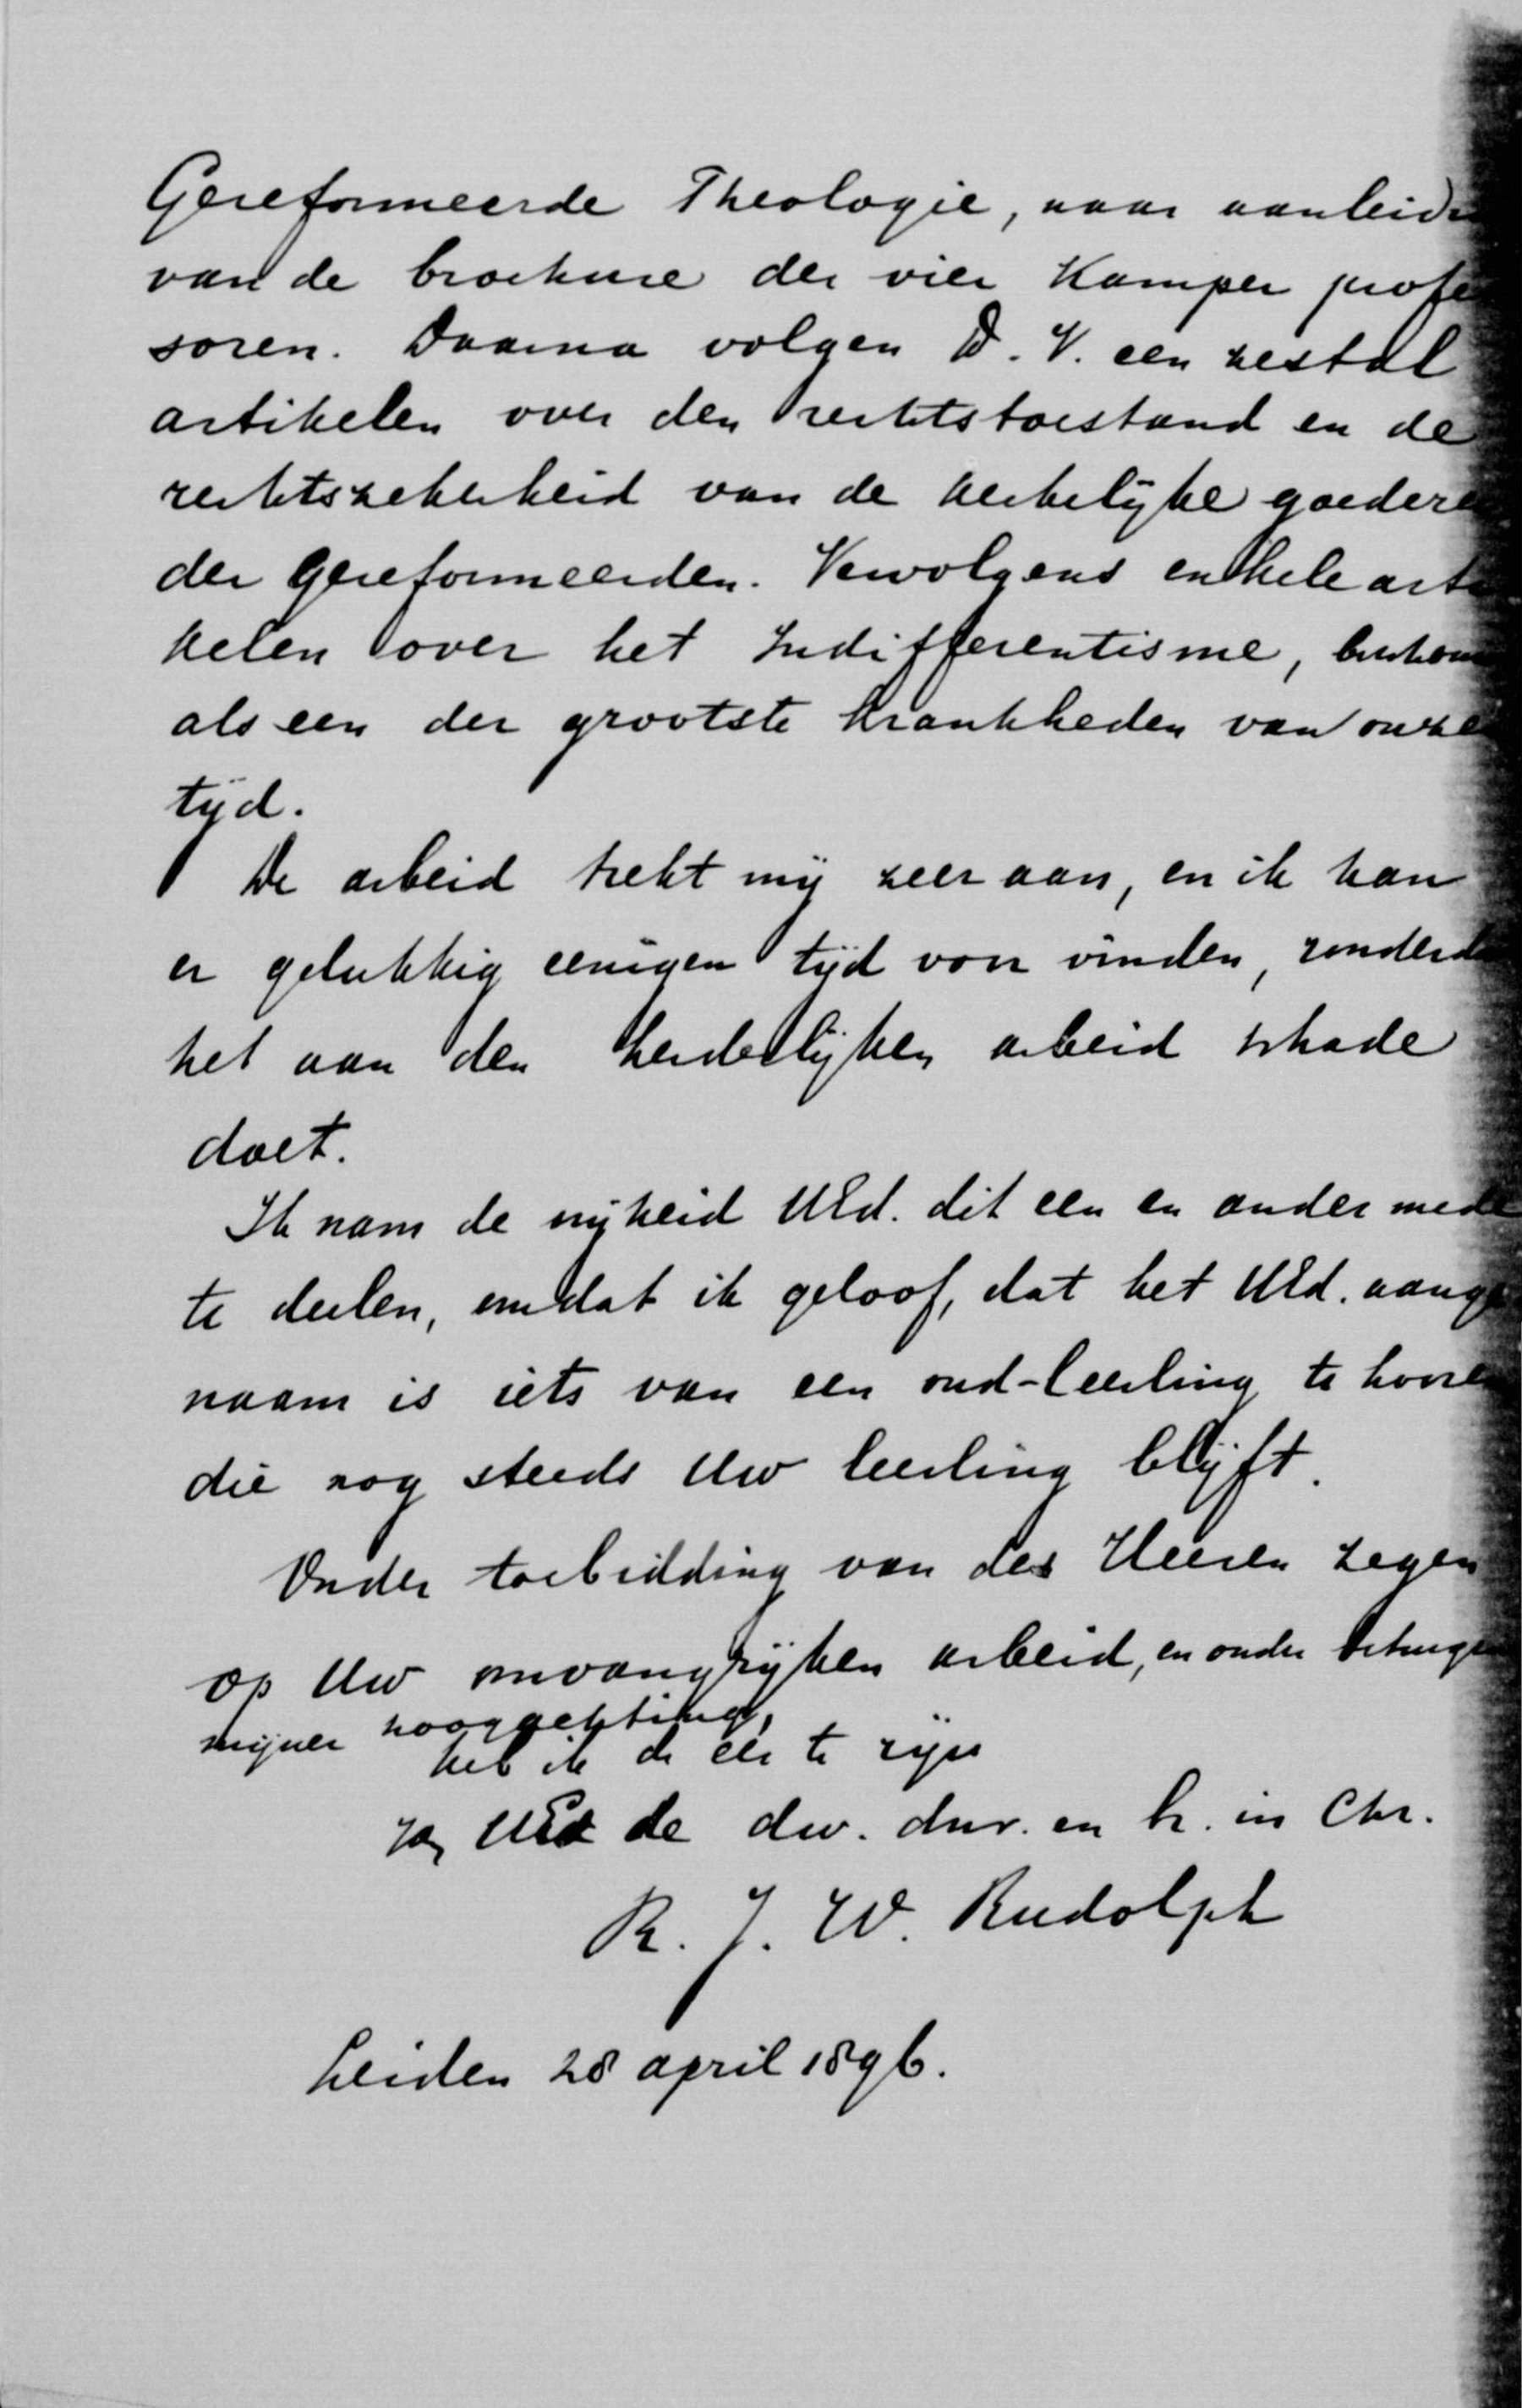 Gereformeerde Theologie, naar aanleid
van de brochure der vier Kamper profes
soren. Daarna volgen D.V. een zestal
artikelen over den rechtstoestand en de
rechtszekerheid van de kerkelijke goedere
der Gereformeerden. Vervolgens enkele arti
kelen over het Indifferentisme, beschou
als een der grootste krankheden van onze
tijd.
De arbeid trekt mij zeer aan, en ik kan
er gelukkig eenigen tijd voor vinden, zonder d
het aan den herderlijken arbeid schade
doet.
Ik nam de vrijheid UEd. dit een en ander mede
te deelen, omdat ik geloof, dat het UEd. aange
naam is iets van een oud-leerling te hooren
die nog steeds Uw leerling blijft.
Onder toebidding van des Heeren zegen
op Uw omvangrijken arbeid, en onder betuig
mijner hoogachting,
heb ik de eer te zijn
UEd de dw. dnr. en br. in Chr.
R. J. W. Rudolph
Leiden 28 april 1896.